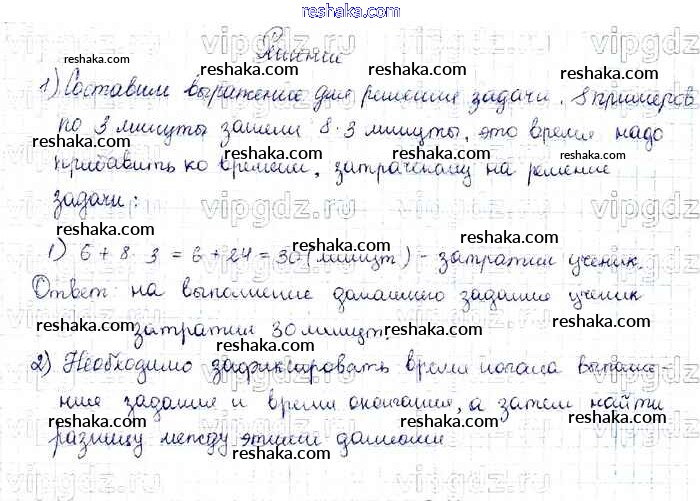 reshaka.com
Решение
1) Составим выражение для решения задачи. 8 примеров
по 3 минуты заняли 8·3 минуты, это время надо
прибавить ко времени, затраченному на решение
задачи:
1) 6 + 8 · 3 = 6 + 24 = 30 (минут) - затратил ученик.
Ответ: на выполнение домашнего задания ученик
затратил 30 минут.
2) Необходимо зафиксировать время начала выполне-
ния задания и время окончания, а затем найти
разницу между этими данными